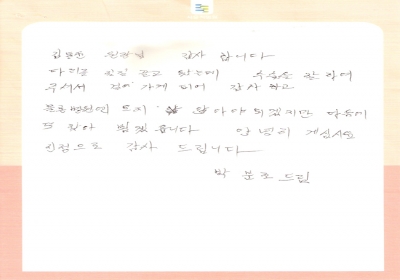 김용찬 원장님 감사 합니다
다리를 만질 같고 왔는데 수술을 잘 하여
주셔서 걸어 가게 되어 감사 하고
물론병원엔 오지 않아야 되겠지만 다음에
또 찾아 뵙겠습니다 안녕히 계십시요
진정으로 감사 드립니다
박 분조 드림